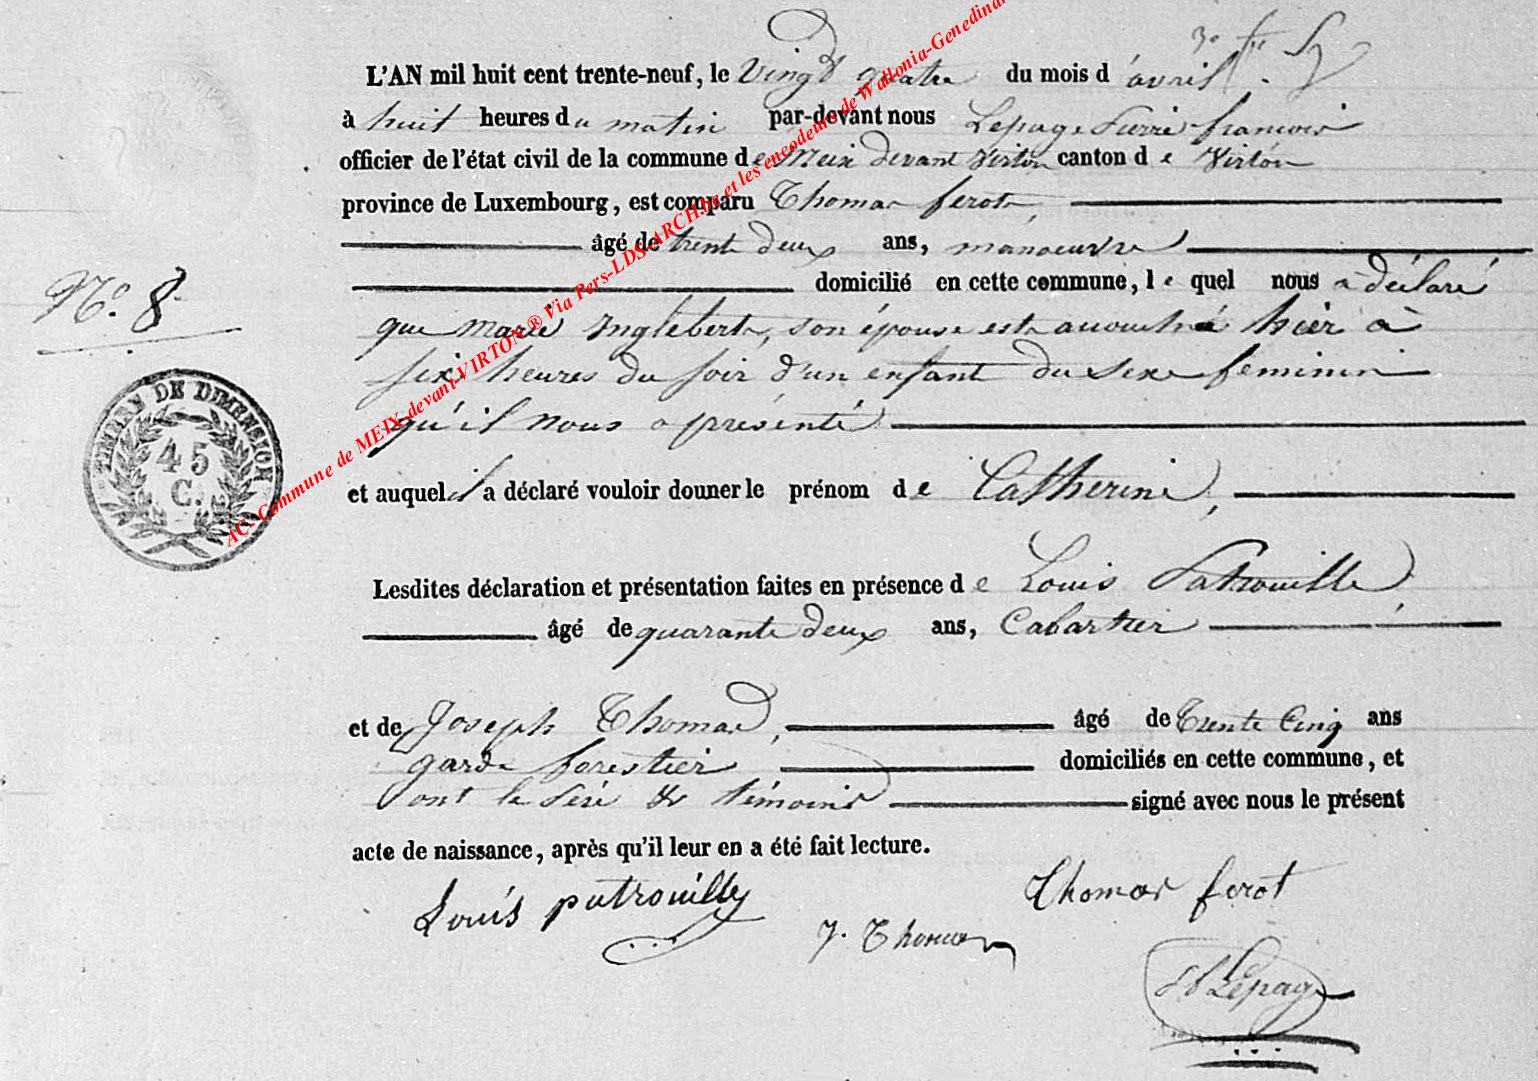 L'AN mil huit cent trente-neuf, le Vingt quatre du mois d'avril
à huit heures du matin par-devant nous Lepage Pierre francois
officier de l'état civil de la commune de Meix devant Virton canton de Virton
province de Luxembourg, est comparu Thomas ferot,
âgé de trente deux ans, manoeuvre
domicilié en cette commune, lequel nous a déclaré
N.º 8
que marie Inglebert, son épouse est accouchée hier à
six heures du soir d'un enfant du sexe feminin
qu'il nous a présenté
TIMBRE DE DIMENSION
45
C.
et auquel il a déclaré vouloir donner le prénom de Catherine,
Lesdites déclaration et présentation faites en présence de Louis Patrouille
âgé de quarante deux ans, Cabartier
et de Joseph Thomas, âgé de Trente Cinq ans
garde forestier domiciliés en cette commune, et
ont le Père & témoins signé avec nous le présent
acte de naissance, après qu'il leur en a été fait lecture.
Louis patrouille
Thomas ferot
J. Thomas
Lepage
AC. Commune de MEIX-devant-VIRTON ® Via Pers-LDS-ARCH.be et les encodeurs de Wallonia-Genedinar